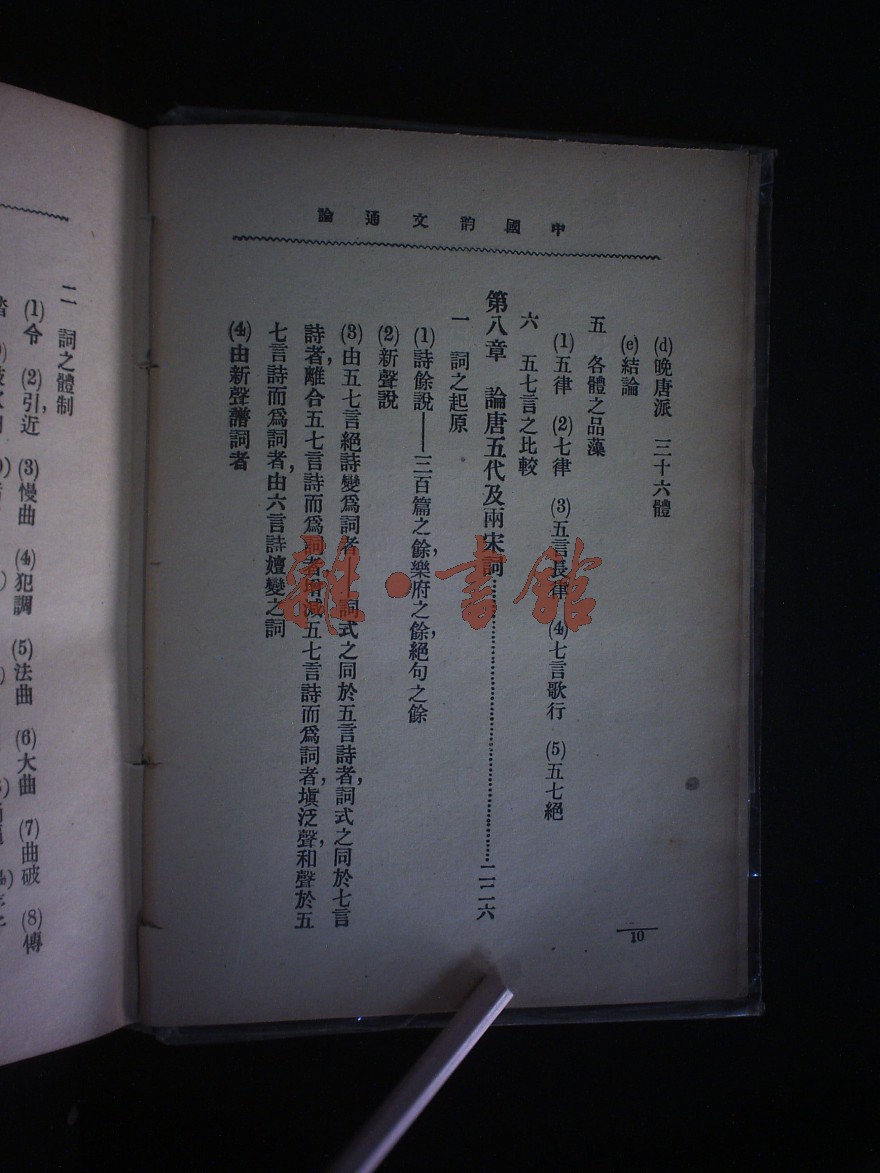 中國韵文通論
(d)晚唐派　三十六體
(e)結論
五　各體之品藻
(1)五律　(2)七律　(3)五言長律　(4)七言歌行　(5)五七絕
六　五七言之比較
第八章　論唐五代及兩宋詞……………………二二六
一　詞之起原
(1)詩餘說——三百篇之餘，樂府之餘，絕句之餘
(2)新聲說
(3)由五七言絕詩變爲詞者　詞式之同於五言詩者，詞式之同於七言
詩者，離合五七言詩而爲詞者，增減五七言詩而爲詞者，塡泛聲，和聲於五
七言詩而爲詞者，由六言詩嬗變之詞
(4)由新聲譜詞者
10
二　詞之體制
(1)令　(2)引近　(3)慢曲　(4)犯調　(5)法曲　(6)大曲　(7)曲破　(8)傳
雜·書館